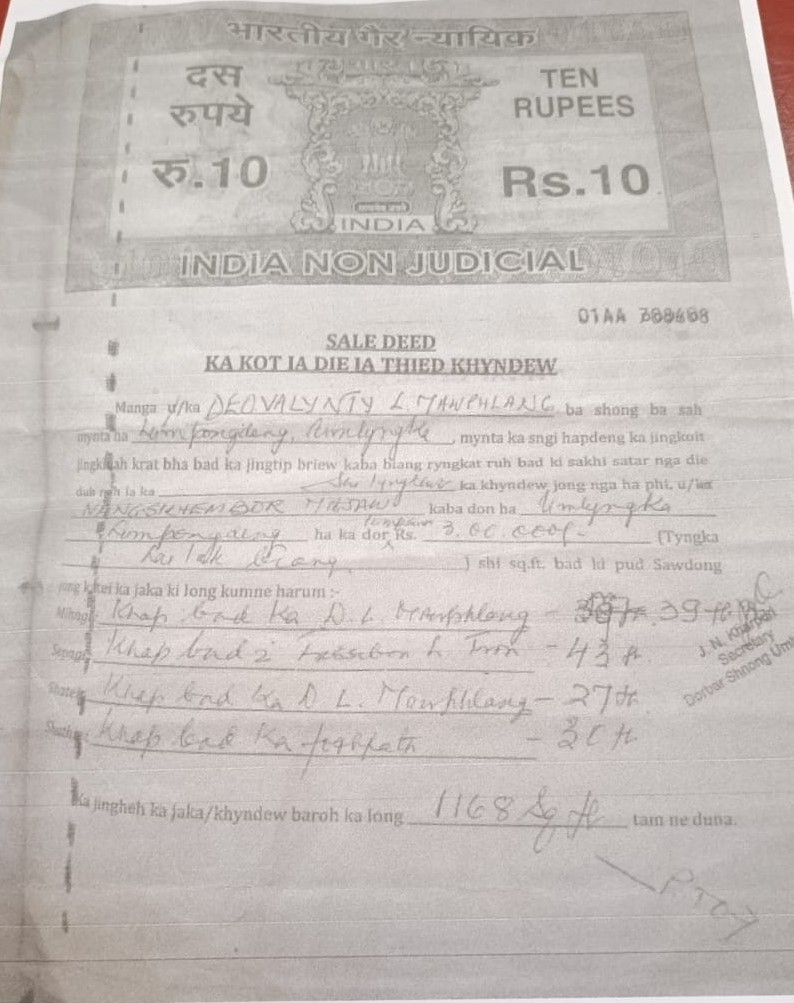 भारतीय गैर न्यायिक
दस
रुपये
रु.10
TEN
RUPEES
Rs.10
INDIA
INDIA NON JUDICIAL
01AA
SALE DEED
KA KOT IA DIE IA THIED KHYNDEW
Manga u/ka DEOVALYNTY L. MAWPHLANG ba shong ba sah
mynta ha Lumpongdeng, Umlyngka, mynta ka sngi hapdeng ka jingkoit
jingkhiah krat bha bad ka jingtip briew kaba biang ryngkat ruh bad ki sakhi satar nga die
duh noh ia ka ka khyndew jong nga ha phi, u/ka
kaba don ha Umlyngka
Lumpongdeng ha ka dor Rs. 3.00.000/- (Tyngka
) shi sq.ft. bad ki pud Sawdong
jong kitei ka jaka ki long kumne harum :-
Mihngi: Khap bad Ka D. L. Mawphlang - 39 ft.
Sepngi: Khap bad - 43 ft.
Shatei: Khap bad Ka D L. Mawphlang - 27 ft
Khap bad Ka footpath - 30 ft.
J. N.
Secretary
Dorbar Shnong
Ka jingheh ka jaka/khyndew baroh ka long 1168 Sq ft tam ne duna.
PTO